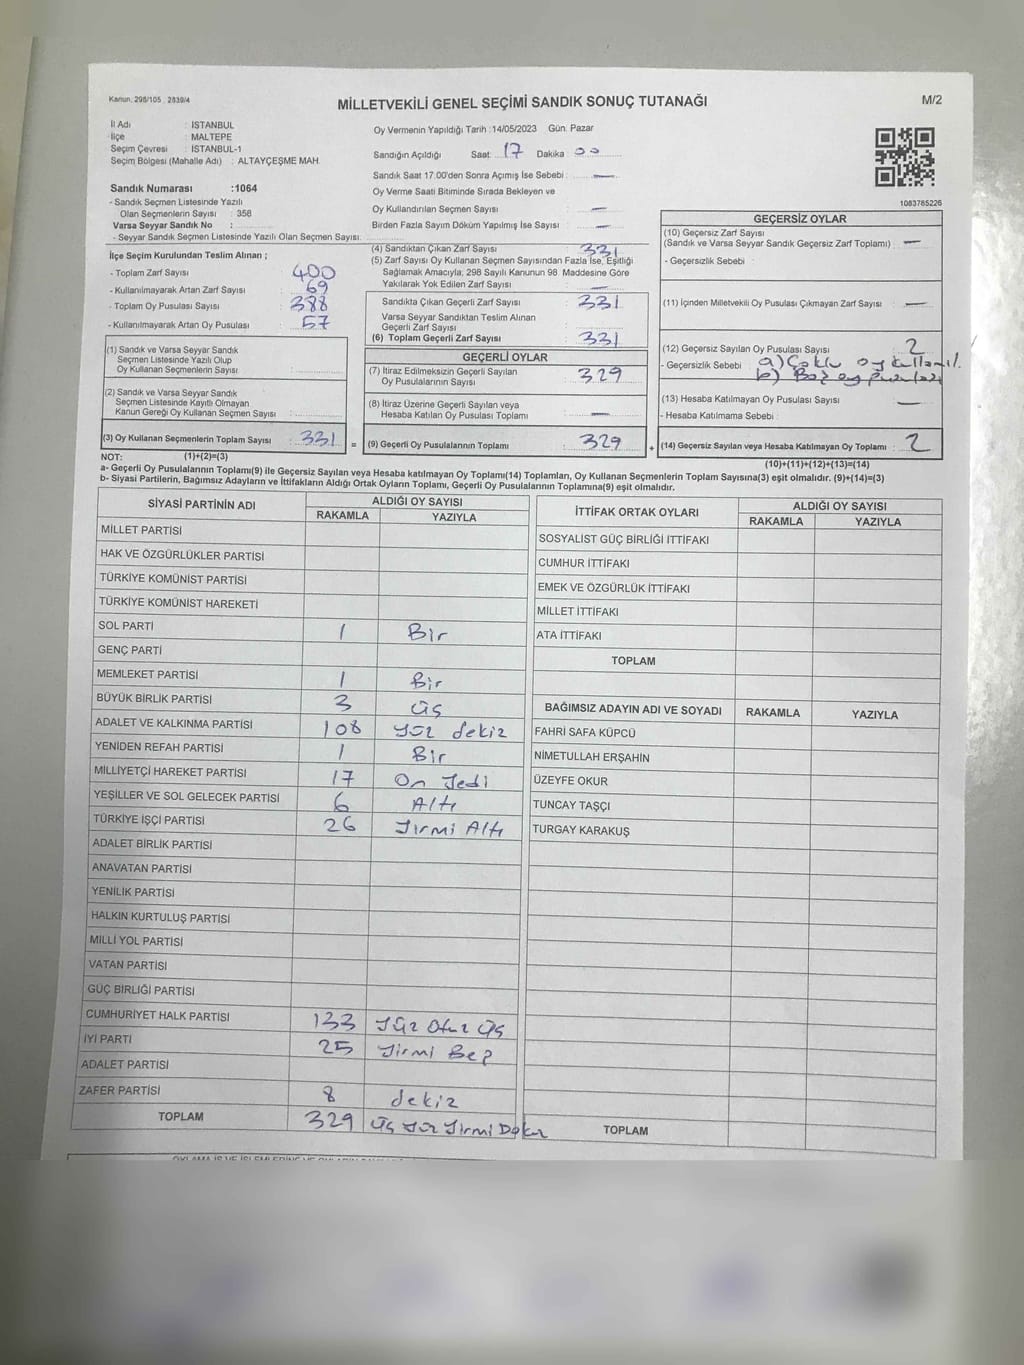 Kanun. 298/105 , 2839/4
MİLLETVEKİLİ GENEL SEÇİMİ SANDIK SONUÇ TUTANAĞI
M/2
İl Adı : İSTANBUL
İlçe : MALTEPE
Seçim Çevresi : İSTANBUL-1
Seçim Bölgesi (Mahalle Adı) : ALTAYÇEŞME MAH.
Sandık Numarası :1064
- Sandık Seçmen Listesinde Yazılı
Olan Seçmenlerin Sayısı : 358
Varsa Seyyar Sandık No :
- Seyyar Sandık Seçmen Listesinde Yazılı Olan Seçmen Sayısı:
İlçe Seçim Kurulundan Teslim Alınan ;
- Toplam Zarf Sayısı : 400
- Kullanılmayarak Artan Zarf Sayısı : 69
- Toplam Oy Pusulası Sayısı : 388
- Kullanılmayarak Artan Oy Pusulası : 57
(1) Sandık ve Varsa Seyyar Sandık
Seçmen Listesinde Yazılı Olup
Oy Kullanan Seçmenlerin Sayısı :
(2) Sandık ve Varsa Seyyar Sandık
Seçmen Listesinde Kayıtlı Olmayan
Kanun Gereği Oy Kullanan Seçmen Sayısı :
(3) Oy Kullanan Seçmenlerin Toplam Sayısı : 331
Oy Vermenin Yapıldığı Tarih :14/05/2023 Gün: Pazar
Sandığın Açıldığı Saat: 17 Dakika : 00
Sandık Saat 17.00'den Sonra Açımış İse Sebebi : —
Oy Verme Saati Bitiminde Sırada Bekleyen ve
Oy Kullandırılan Seçmen Sayısı : —
Birden Fazla Sayım Döküm Yapılmış İse Sayısı : —
(4) Sandıktan Çıkan Zarf Sayısı : 331
(5) Zarf Sayısı Oy Kullanan Seçmen Sayısından Fazla İse, Eşitliği
Sağlamak Amacıyla, 298 Sayılı Kanunun 98 Maddesine Göre
Yakılarak Yok Edilen Zarf Sayısı : —
Sandıkta Çıkan Geçerli Zarf Sayısı : 331
Varsa Seyyar Sandıktan Teslim Alınan
Geçerli Zarf Sayısı :
(6) Toplam Geçerli Zarf Sayısı : 331
GEÇERLİ OYLAR
(7) İtiraz Edilmeksizin Geçerli Sayılan
Oy Pusulalarının Sayısı : 329
(8) İtiraz Üzerine Geçerli Sayılan veya
Hesaba Katılan Oy Pusulası Toplamı : —
= (9) Geçerli Oy Pusulalarının Toplamı : 329
1083785226
GEÇERSİZ OYLAR
(10) Geçersiz Zarf Sayısı
(Sandık ve Varsa Seyyar Sandık Geçersiz Zarf Toplamı) : —
- Geçersizlik Sebebi :
(11) İçinden Milletvekili Oy Pusulası Çıkmayan Zarf Sayısı : —
(12) Geçersiz Sayılan Oy Pusulası Sayısı : 2
- Geçersizlik Sebebi : a) Çoklu oy kullanıl.
b) Boş oy pusulası
(13) Hesaba Katılmayan Oy Pusulası Sayısı : —
- Hesaba Katılmama Sebebi :
+ (14) Geçersiz Sayılan veya Hesaba Katılmayan Oy Toplamı : 2
NOT: (1)+(2)=(3)
(10)+(11)+(12)+(13)=(14)
a- Geçerli Oy Pusulalarının Toplamı(9) ile Geçersiz Sayılan veya Hesaba katılmayan Oy Toplamı(14) Toplamları, Oy Kullanan Seçmenlerin Toplam Sayısına(3) eşit olmalıdır. (9)+(14)=(3)
b- Siyasi Partilerin, Bağımsız Adayların ve İttifakların Aldığı Ortak Oyların Toplamı, Geçerli Oy Pusulalarının Toplamına(9) eşit olmalıdır.
SİYASİ PARTİNİN ADI ALDIĞI OY SAYISI
RAKAMLA YAZIYLA
MİLLET PARTİSİ
HAK VE ÖZGÜRLÜKLER PARTİSİ
TÜRKİYE KOMÜNİST PARTİSİ
TÜRKİYE KOMÜNİST HAREKETİ
SOL PARTİ 1 Bir
GENÇ PARTİ
MEMLEKET PARTİSİ 1 Bir
BÜYÜK BİRLİK PARTİSİ 3 Üç
ADALET VE KALKINMA PARTİSİ 108 Yüz Sekiz
YENİDEN REFAH PARTİSİ 1 Bir
MİLLİYETÇİ HAREKET PARTİSİ 17 On Yedi
YEŞİLLER VE SOL GELECEK PARTİSİ 6 Altı
TÜRKİYE İŞÇİ PARTİSİ 26 Yirmi Altı
ADALET BİRLİK PARTİSİ
ANAVATAN PARTİSİ
YENİLİK PARTİSİ
HALKIN KURTULUŞ PARTİSİ
MİLLİ YOL PARTİSİ
VATAN PARTİSİ
GÜÇ BİRLİĞİ PARTİSİ
CUMHURİYET HALK PARTİSİ 133 Yüz Otuz Üç
İYİ PARTİ 25 Yirmi Beş
ADALET PARTİSİ
ZAFER PARTİSİ 8 Sekiz
TOPLAM 329 Üç Yüz Yirmi Dokuz
İTTİFAK ORTAK OYLARI ALDIĞI OY SAYISI
RAKAMLA YAZIYLA
SOSYALIST GÜÇ BİRLİĞİ İTTİFAKI
CUMHUR İTTİFAKI
EMEK VE ÖZGÜRLÜK İTTİFAKI
MİLLET İTTİFAKI
ATA İTTİFAKI
TOPLAM
BAĞIMSIZ ADAYIN ADI VE SOYADI RAKAMLA YAZIYLA
FAHRİ SAFA KÜPCÜ
NİMETULLAH ERŞAHİN
ÜZEYFE OKUR
TUNCAY TAŞÇI
TURGAY KARAKUŞ
TOPLAM